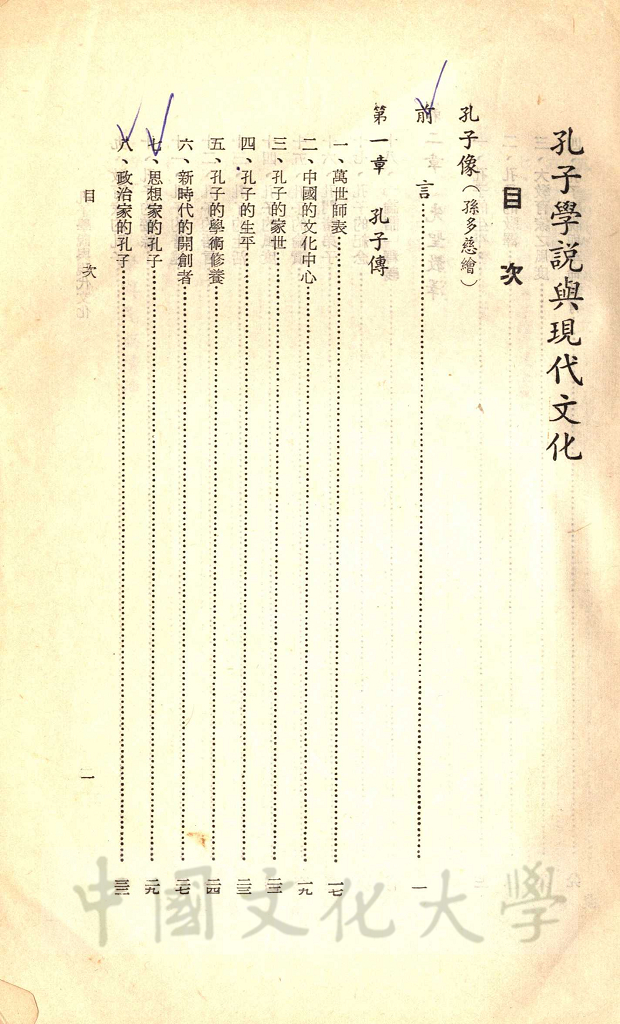 孔子學說與現代文化
目次
孔子像（孫多慈繪）
前言……一
第一章 孔子傳
一、萬世師表……一七
二、中國的文化中心……一九
三、孔子的家世……
四、孔子的生平……二三
五、孔子的學術修養……二四
六、新時代的開創者……二七
七、思想家的孔子……二九
八、政治家的孔子……
目次 一
中國文化大學